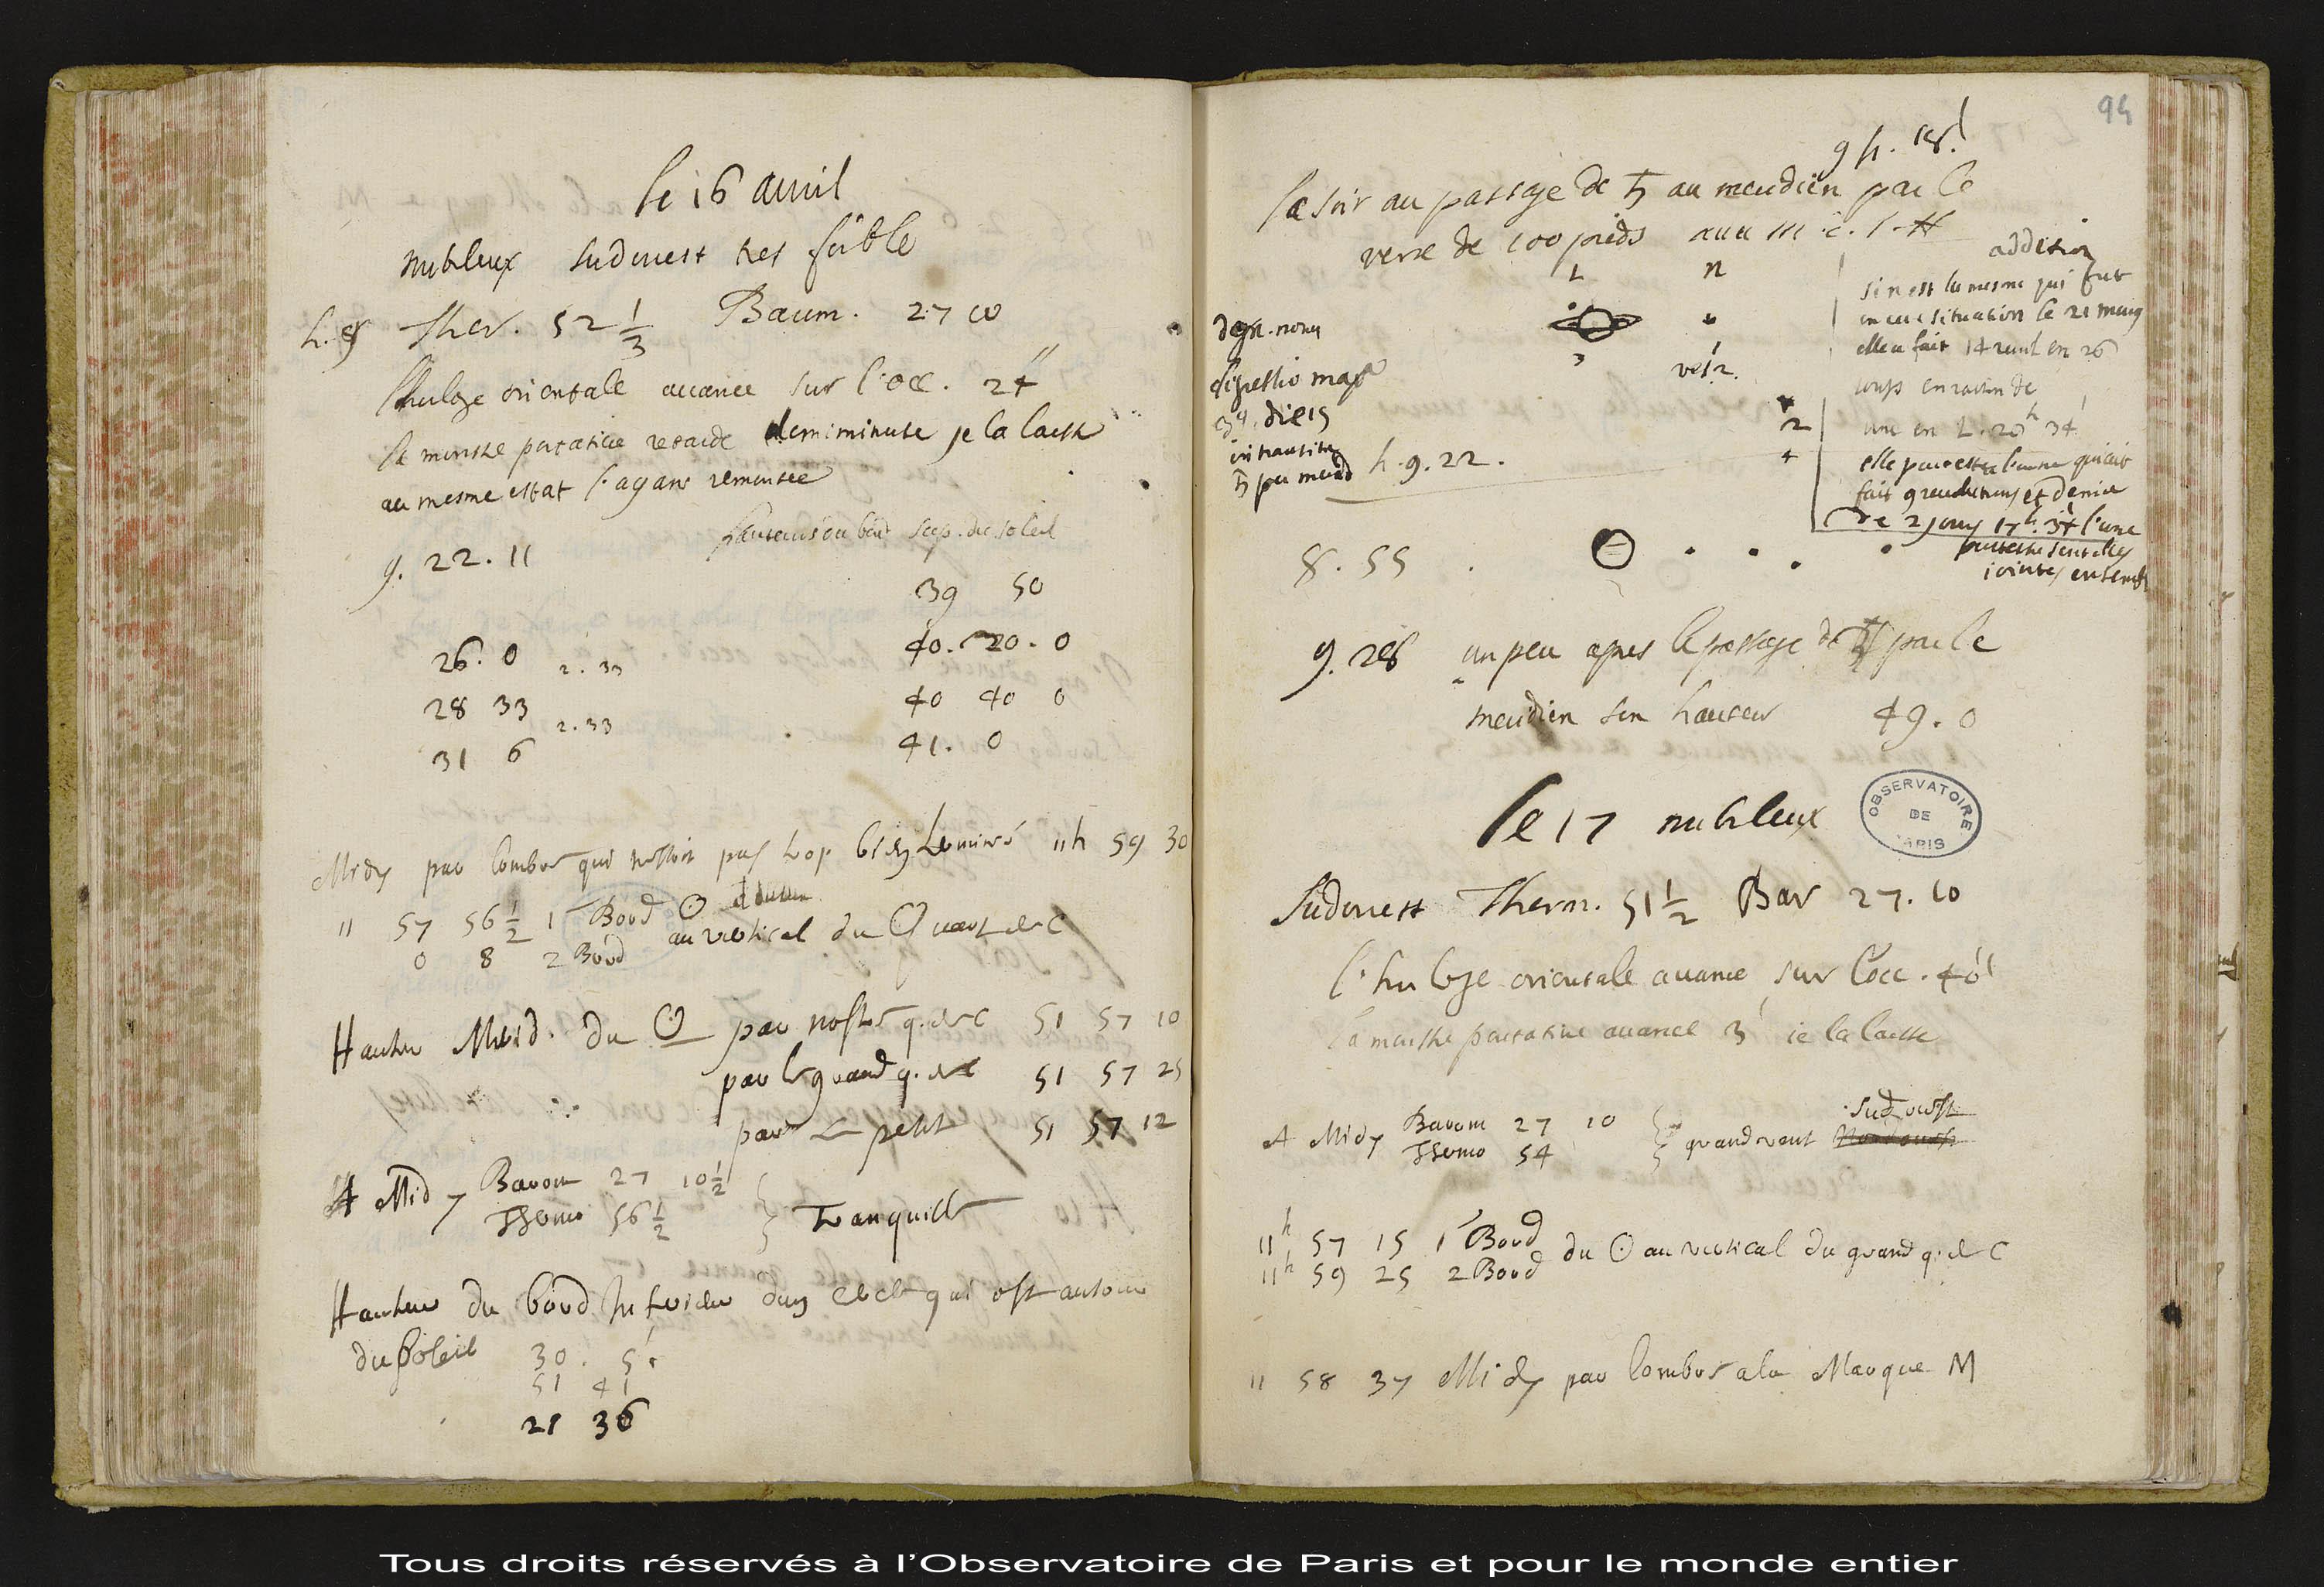 le 16 auril
nubileux sudouest tres foible
h. 8 Ther. 52 1/3 Barum. 27 10
l'horloge orientale auance sur l'occ. 24"
la monstre portatiue retarde demiminute je la laisse
au mesme estat l'ayant remontée
hauteurs du bord sup. du soleil
9. 22. 11 39 50
26. 0 2. 33 40. 20. 0
28 33 2. 33 40 40 0
31 6 41. 0
Midy par lombre qui nestoit pas trop bien terminé 11h 59 30
11 57 56 1/2 1 Bord ☉
0 8 2 Bord au vertical du Quart de C
Hauteur Merid. du ☉ par nostre q. de C 51 57 10
par le grand q. de C 51 57 25
par le petit 51 57 12
A Midy Barom 27 10 1/2
Thermo 56 1/2 Tranquille
Hauteur du bord Inferieur dun cercle qui est autour
du Soleil 30. 5
51 41
21 36
94
9 h. 18'
Le soir au passage de ♄ au meridien par le
verre de 100 pieds
addition
si n est la mesme qui fut
en cette situation le 21 mars
elle a fait 14 reuol en 26
jours en raison de
une en 1. 20h 34'
elle peut estre l'autre qui ait
fait 9 reuolutions et demie
de 2 jours 17h. 34 l'une
peutestre sont elles
jointes ensemble
digressio max
die 15
in transitu
♄ per merid h. 9. 22.
8. 55
9. 28 un peu apres le passage de ♃ par le
meridien son hauteur 49. 0
le 17 nubileux
OBSERVATOIRE DE PARIS
Sudouest Therm. 51 1/2 Bar 27. 10
l'horloge orientale auance sur l'occ. 40"
la monstre portatiue auance 3' ie la laisse
A Midy Barom 27 10 Sud ouest
Thermo 54 grand vent Nord ouest
11h 57 15 1 Bord
11h 59 25 2 Bord du ☉ au vertical du grand q. de C
11 58 37 Midy par lombre a la Marque M
Tous droits réservés à l'Observatoire de Paris et pour le monde entier